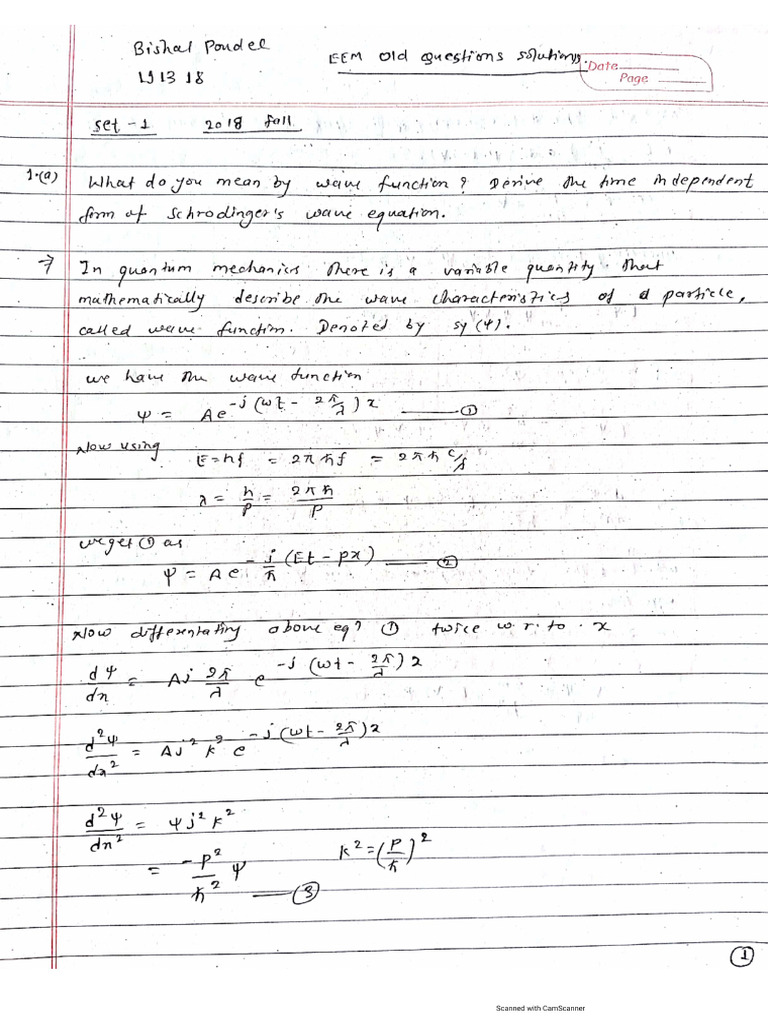 Bishal Poudel
EEM Old Questions Solutions.
Date
Page
191318
Set-1 2018 fall
1.(a) What do you mean by wave function? Derive the time independent
form of Schrodinger's wave equation.
→ In quantum mechanics there is a variable quantity that
mathematically describe the wave characteristics of a particle,
called wave function. Denoted by sy (ψ).
we have the wave function
ψ = Ae^{-j(ωt - 2π/λ)x} —— ①
Now using
E = hf = 2πħf = 2πħ c/λ
λ = h/p = 2πħ/p
we get ① as
ψ = Ae^{-j/ħ (Et - px)} —— ②
Now differentiating above eqn ① twice w.r.to. x
dψ/dx = Aj 2π/λ e^{-j(ωt - 2π/λ)x}
d²ψ/dx² = Aj² k² e^{-j(ωt - 2π/λ)x}
d²ψ/dx² = ψj²k²
= -p²/ħ² ψ —— ③ k² = (p/ħ)²
①
Scanned with CamScanner